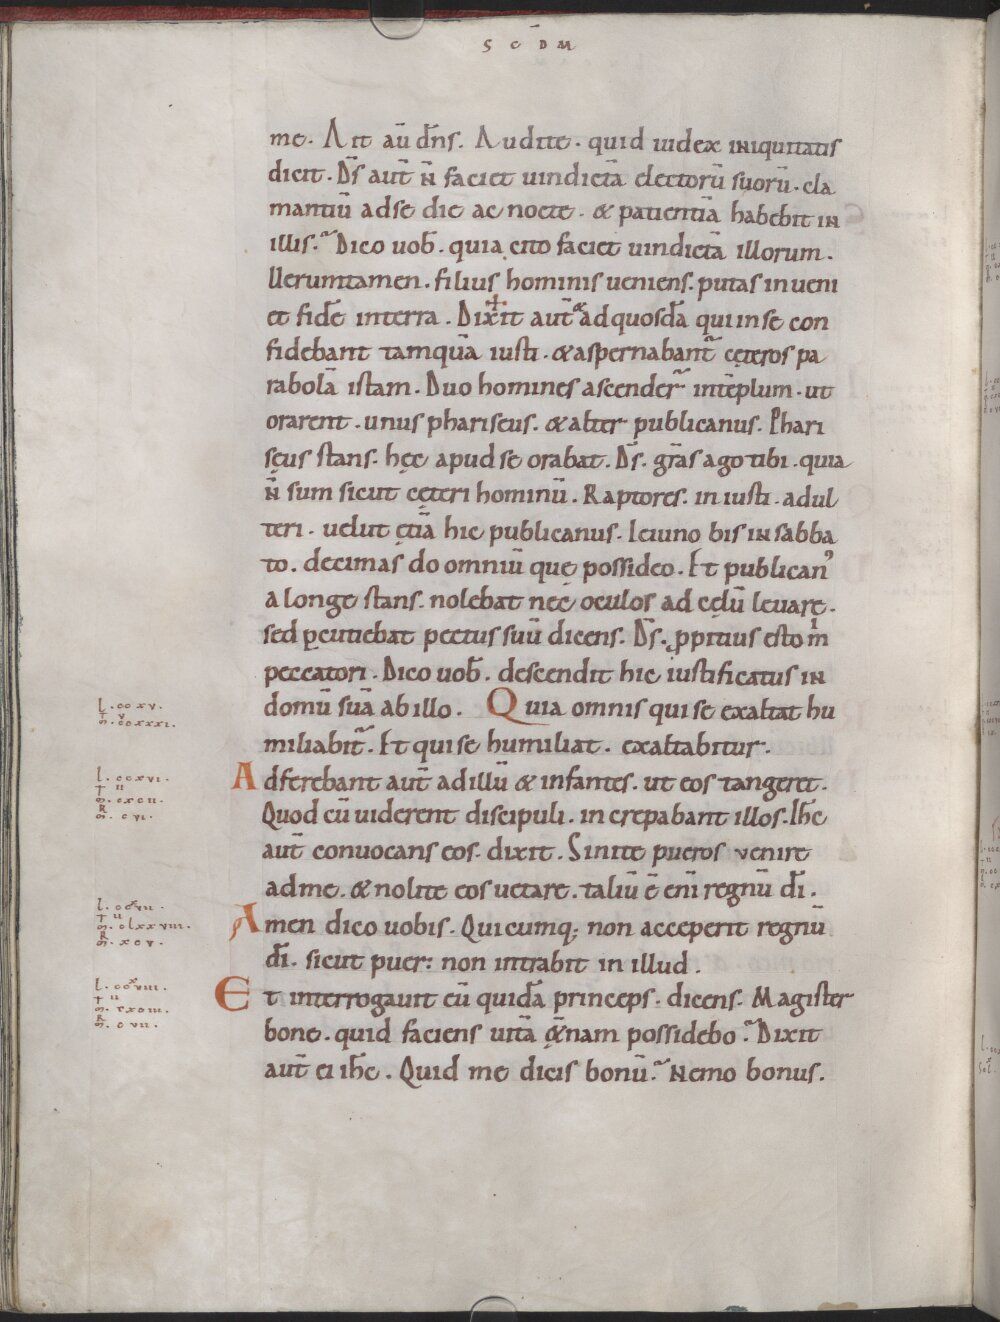 S C D M
me. Ait aū dn̄s. Audite. quid iudex iniquitatis
dicit. D̄s aut̄ n̄ faciet uindictā electorū suorū. cla
mantiū ad se die ac nocte. & patientiā habebit in
illis. Dico uob̄. quia cito faciet uindictā illorum.
Uerumtamen. filius hominis ueniens. putas inueni
et fidē in terra. Dixit aut̄ & ad quosdā qui in se con
fidebant tamquā iusti. & aspernabant̃ cęteros pa
rabolā istam. Duo homines ascender̃ in tēplum. ut
orarent. unus phariseus. & alter publicanus. Phari
sęus stans. hęc apud se orabat. D̄s. gr̄as ago tibi. quia
n̄ sum sicut cęteri hominū. Raptores. iniusti. adul
teri. uelut ętiā hic publicanus. Ieiuno bis in sabba
to. decimas do omniū que possideo. Et publican᾽
a longe stans. nolebat nec oculos ad cęlū leuare.
sed ꝑcutiebat pectus suū dicens. D̄s. ꝓpitius esto m̄
peccatori. Dico uob̄. descendit hic iustificatus in
domū suā ab illo. Quia omnis qui se exaltat hu
miliabit̃. Et qui se humiliat. exaltabitur.
Adferebant aut̄ ad illū & infantes. ut eos tangeret.
Quod cū uiderent discipuli. increpabant illos. Ih̄c
aut̄ conuocans eos. dixit. Sinite pueros venire
ad me. & nolite eos uetare. taliū ē eni̅ regnū dı̄.
Amen dico uobis. Quicumq; non acceperit regnū
dı̄. sicut puer: non intrabit in illud.
Et interrogauit eū quidā princeps. dicens. Magister
bone. quid faciens uitā ę̄nam possidebo. Dixit
aut̄ ei ih̄c. Quid me dicis bonū. Nemo bonus.
L. ccxv.
L. ccxvi.